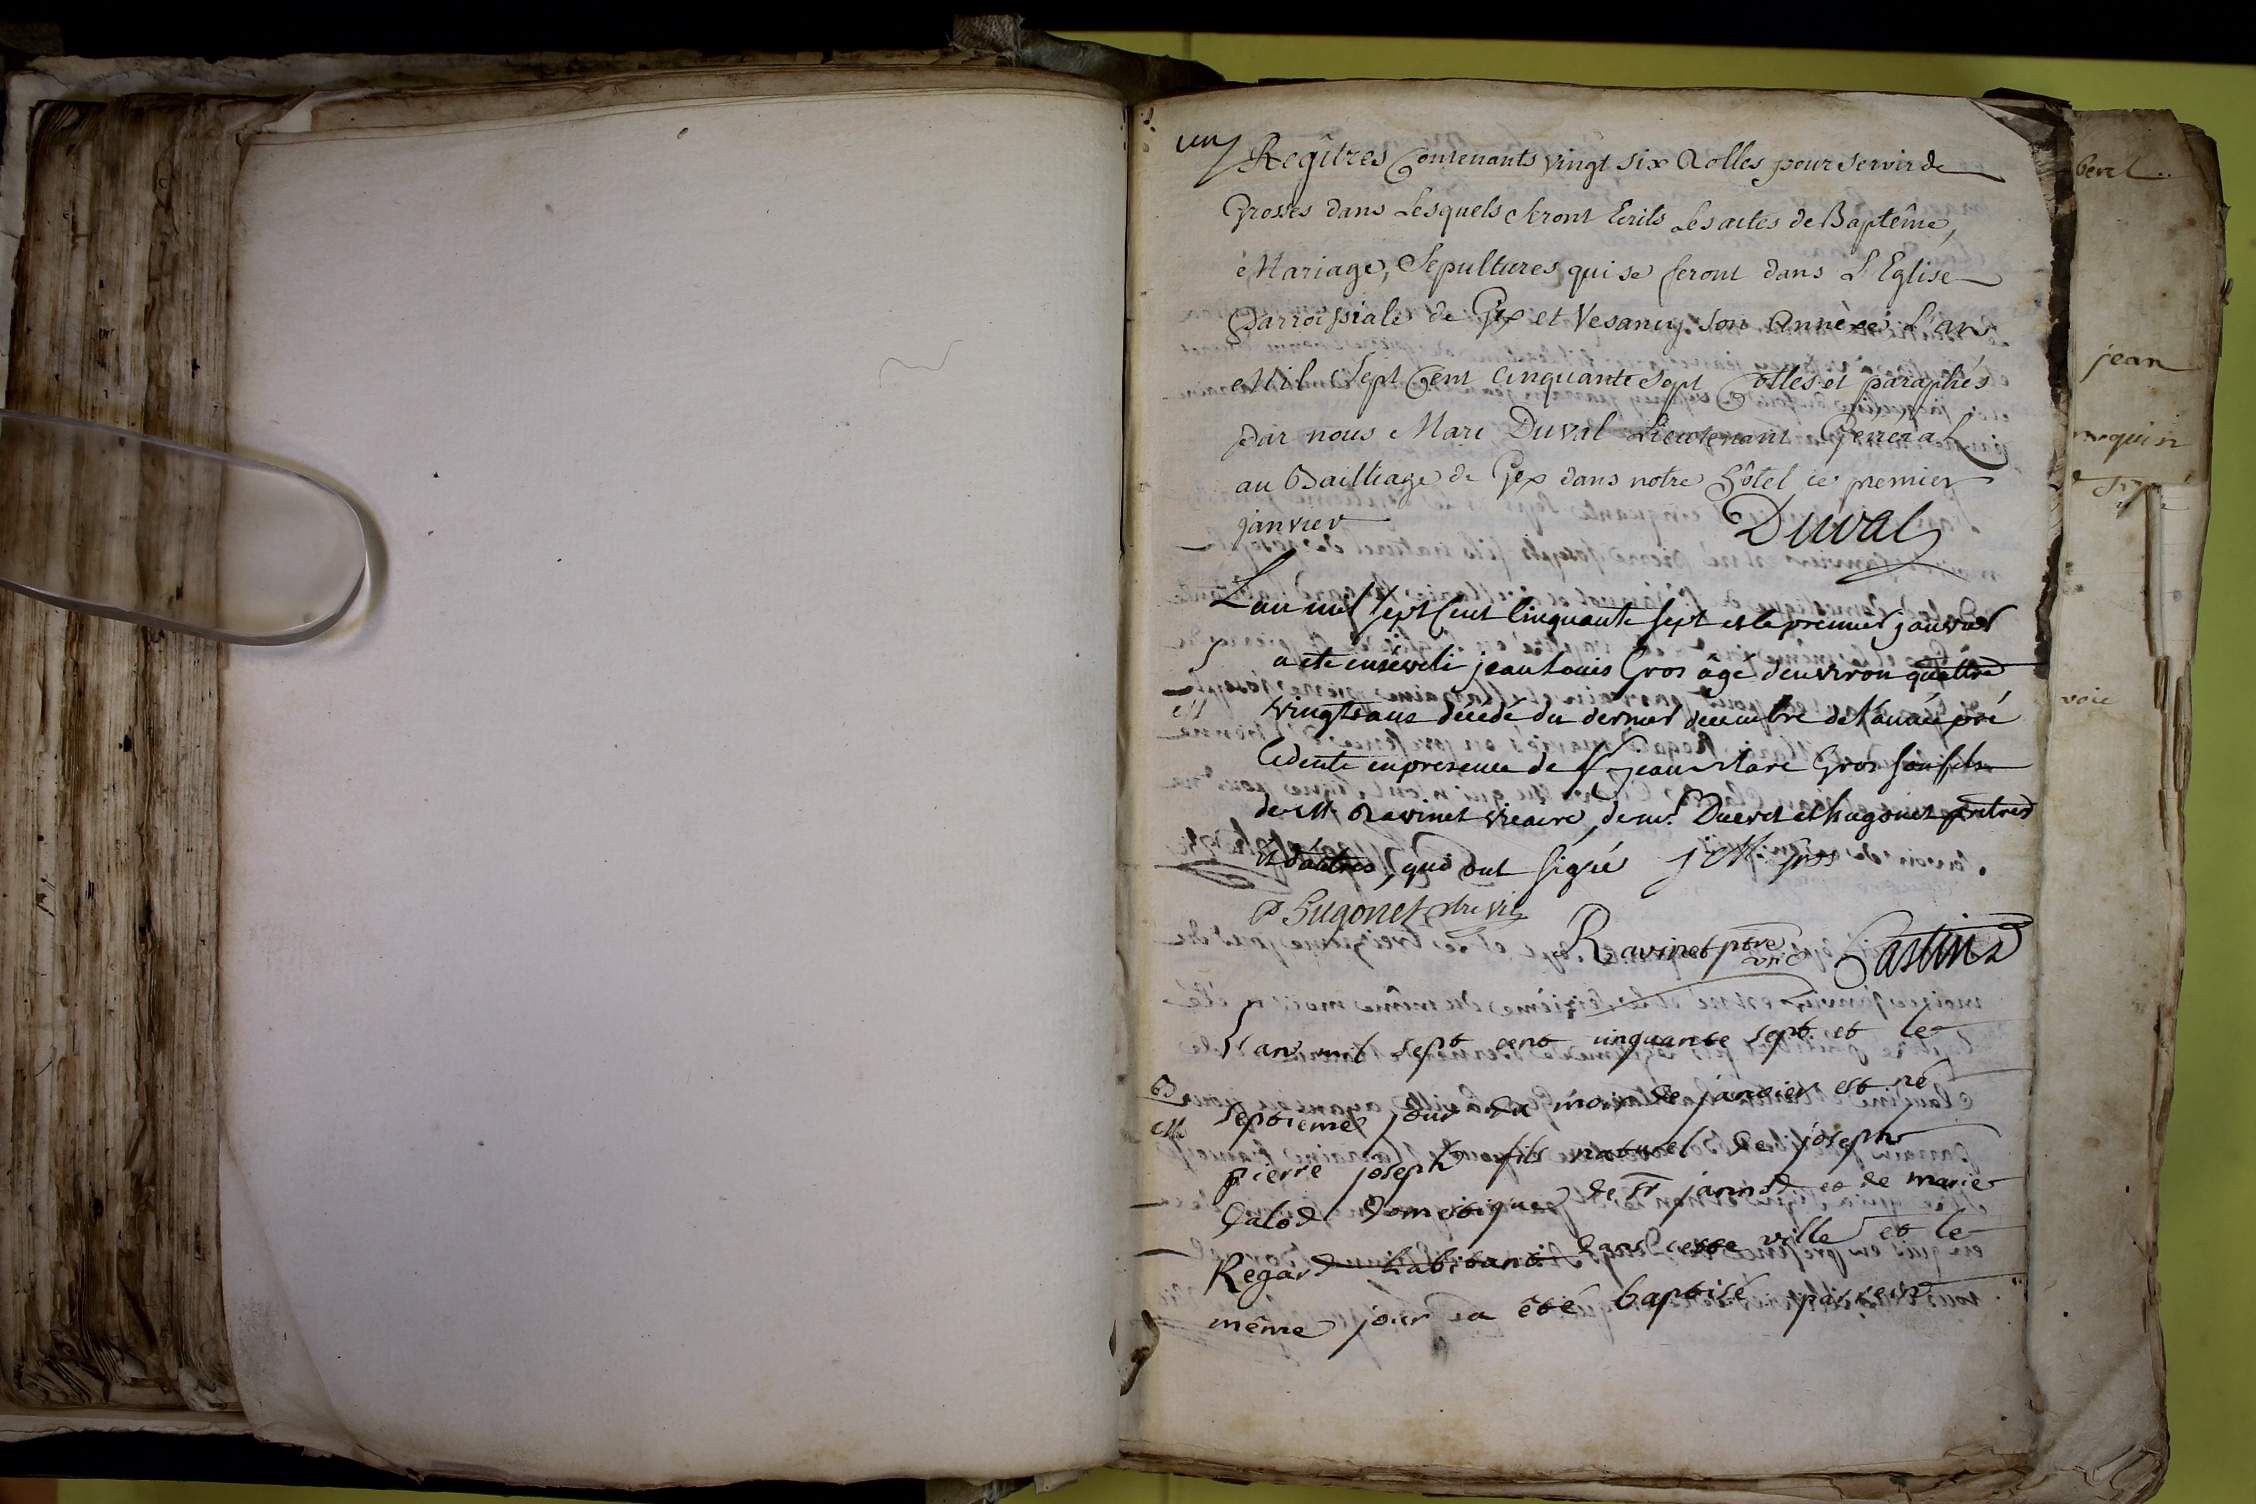 un
Regîtres Contenants vingt six Rolles pour servir de
Grosses dans Lesquels seront Ecrits Les actes de Baptême,
Mariage, Sepultures qui se feront dans L'Eglise
Parroissiale de Gex et Vesancy son Annéxe L'an
Mil Sept Cent Cinquante sept Cottes et paraphés
Par nous Marc Duval Lieutenant Général
au Bailliage de Gex dans notre hôtel ce premier
janvier
Duval
L'an mil sept Cent Cinquante sept et le premier janvier
S a ete enseveli jean Louis Gros âgé d'environ quattre
M vingts ans décedé du dernier decembre de l'année pré
cedente en presence de Sr jean Marc Gros son fils
de Mr Ravinet vicaire, de mrs Duevet et hugonet prêtres
et d'autres, qui ont signé J M gros
P hugonet ptre vic
Ravinet ptre vic
Castin
L'an mil sept cent cinquante sept et le
B septieme jour du mois de janvier est né
M pierre joseph fils naturel de joseph
Calod domestique de Sr janin et de marie
Regard habitant dans cette ville et le
même jour a été baptisé
jean
quin
voie